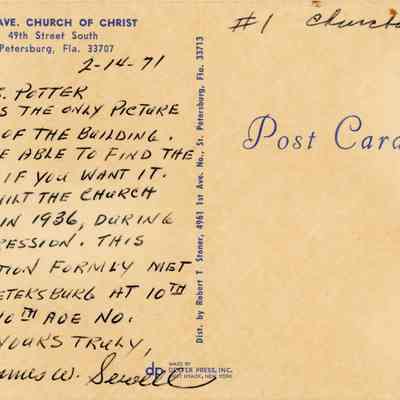 AVE. CHURCH OF CHRIST
49th Street South
Petersburg, Fla. 33707
2-14-71
S. POTTER
S THE ONLY PICTURE
OF THE BUILDING.
E ABLE TO FIND THE
IF YOU WANT IT.
ILT THE CHURCH
IN 1936, DURING
RESSION. THIS
TION FORMLY MET
ETERSBURG AT 10TH
10TH AVE NO.
YOURS TRULY,
ames W. Sewell
Dist. by Robert T Stoner, 4961 1st Ave. No., St. Petersburg, Fla. 33713
dp
MADE BY
DEXTER PRESS, INC.
WEST NYACK, NEW YORK
#1 Church
Post Card